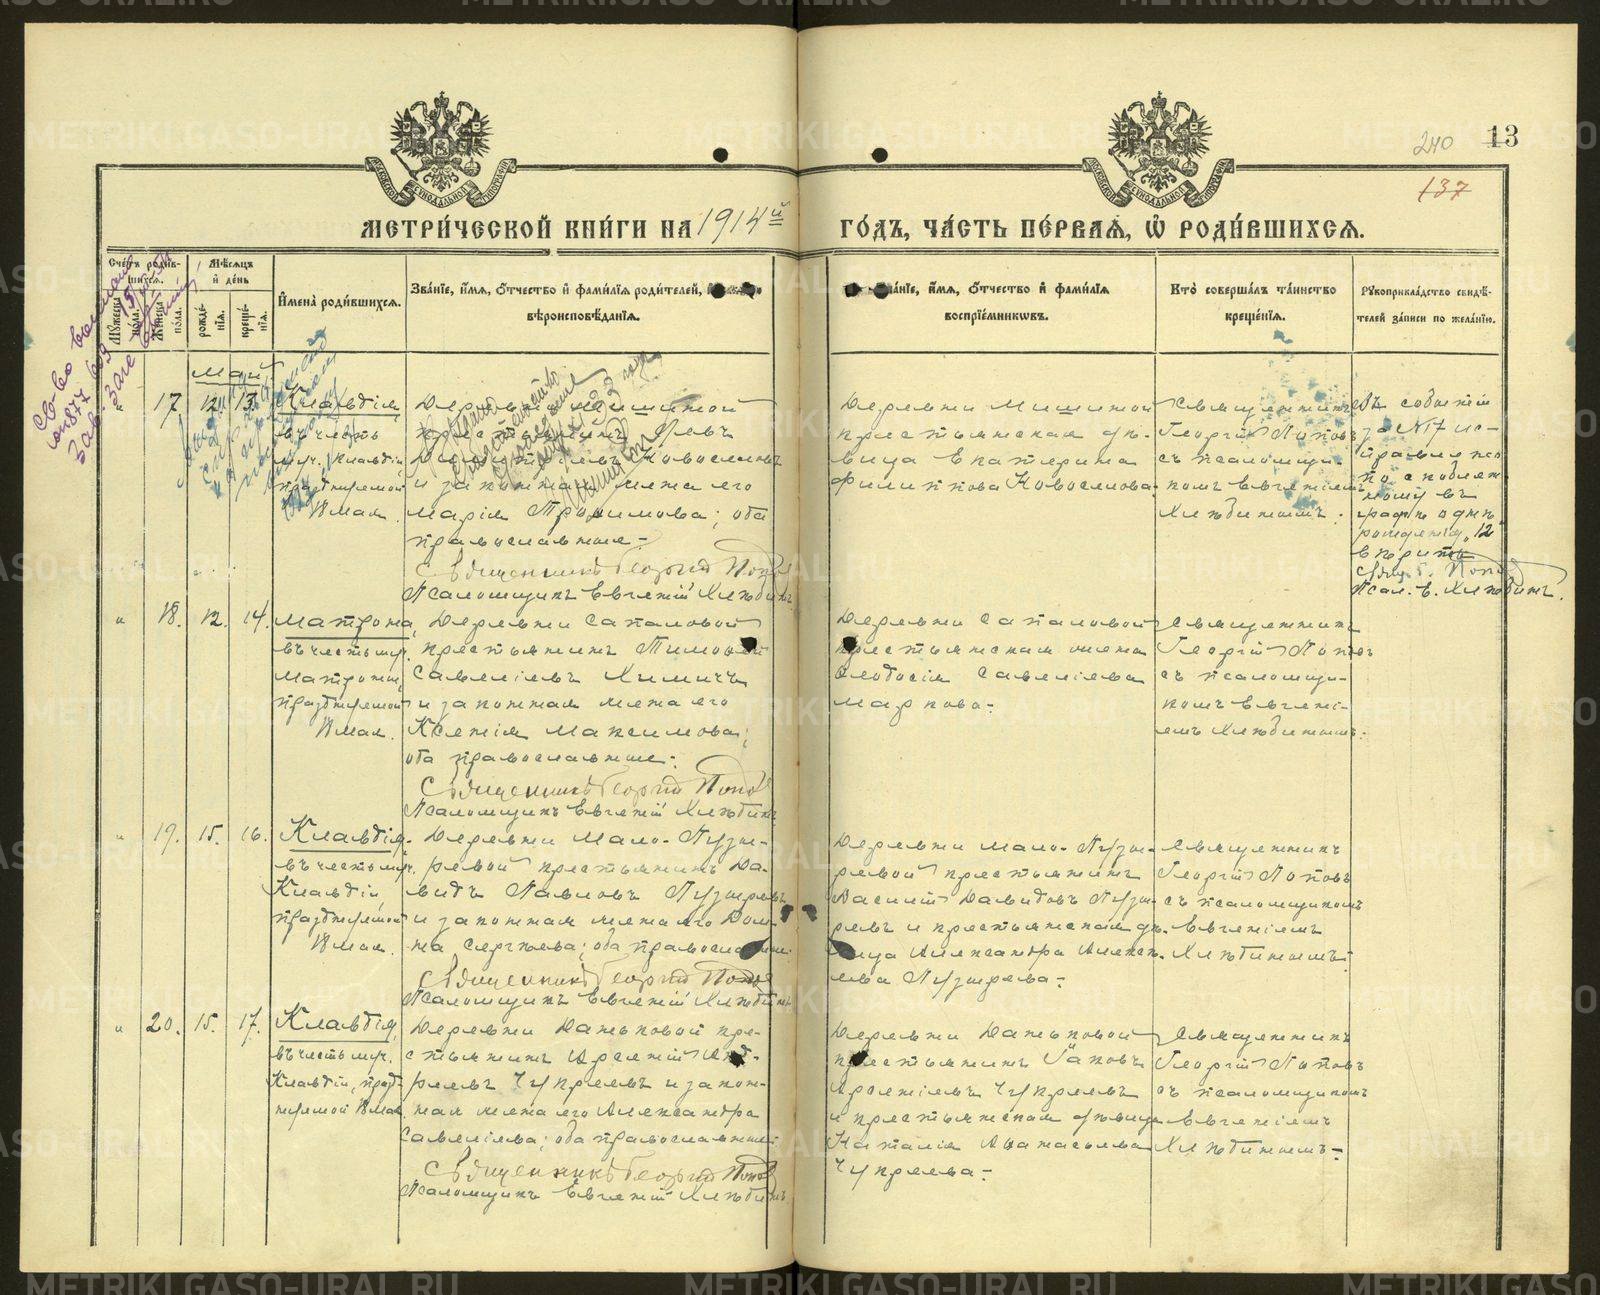 240 13
137
МОСКОВСКОЙ СѴНОДАЛЬНОЙ ТИПОГРАФІИ
МОСКОВСКОЙ СѴНОДАЛЬНОЙ ТИПОГРАФІИ
МЕТРИ́ЧЕСКОЙ КНИ́ГИ НА 1914й ГО́ДЪ, ЧА́СТЬ ПЕ́РВАѦ, Ѽ РОДИ́ВШИХСѦ.
Сче́тъ роди́вшихсѧ.
Мѣ́сѧцъ и҆ де́нь
Мꙋ́жеска по́ла.
Же́нска по́ла.
рожде́нїѧ.
креще́нїѧ.
И҆мена̀ роди́вшихсѧ.
Зва́нїе, и҆́мѧ, ѻ҆́тчество и҆ фамі́лїѧ роди́телей,
вѣроисповѣ́данїѧ.
и҆́мѧ, ѻ҆́тчество и҆ фамі́лїѧ
воспрїе́мникѡвъ.
Кто̀ соверша́лъ та́инство
креще́нїѧ.
Рꙋкоприкла́дство свидѣ́телей за́писи по жела́нїю.
Май
" 17. 12. 13.
Клавдія
въ честь
муч. Клавдіи
празднуемой
18 мая.
Деревни Мишиной
крестьянинъ
Новоселовъ
и законная жена его
Марія Трофимова; оба
православные.
Священникъ Георгій Поповъ
Псаломщикъ Евгеній Хлѣбинъ
Деревни Мишиной
крестьянская дѣ-
вица Екатерина
Филиппова Новоселова.
Священникъ
Георгій Поповъ
съ псаломщи-
комъ Евгеніемъ
Хлѣбинымъ.
Въ событіи
за №17 ис-
правлено
графѣ о днѣ
рожденія "12"
вѣрно
Свящ. Г. Поповъ
Псал. Е. Хлѣбинъ.
" 18. 12. 14.
Матрона,
въ честь муч.
Матроны,
празднуемой
18 мая.
Деревни Сапаловой
крестьянинъ Тимофей
Савеліевъ Химичъ
и законная жена его
Ксенія Максимова;
оба православные.
Священникъ Георгій Поповъ
Псаломщикъ Евгеній Хлѣбинъ
Деревни Сапаловой
крестьянская жена
Феодосія Савеліева
Маркова.
Священникъ
Георгій Поповъ
съ псаломщи-
комъ Евгені-
емъ Хлѣбинымъ.
" 19. 15. 16.
Клавдія,
въ честь муч.
Клавдіи,
празднуемой
18 мая.
Деревни Мало-Пузы-
ревой крестьянинъ Да-
видъ Павловъ Пузыревъ
и законная жена его Дом-
на Сергѣева; оба православные.
Священникъ Георгій Поповъ
Псаломщикъ Евгеній Хлѣбинъ
Деревни Мало-Пузы-
ревой крестьянинъ
Василій Давидовъ Пузы-
ревъ и крестьянская дѣ-
вица Александра Алексѣ-
ева Пузырева.
Священникъ
Георгій Поповъ
съ псаломщикомъ
Евгеніемъ
Хлѣбинымъ.
" 20. 15. 17.
Клавдія,
въ честь муч.
Клавдіи, празд-
нуемой 18 мая
Деревни Даньковой кре-
стьянинъ Арсеній Анд-
реевъ Чупреевъ и закон-
ная жена его Александра
Савеліева; оба православные.
Священникъ Георгій Поповъ
Псаломщикъ Евгеній Хлѣбинъ
Деревни Даньковой
крестьянинъ Іаковъ
Арсеніевъ Чупреевъ
и крестьянская дѣвица
Наталія Аѳанасьева
Чупреева.
Священникъ
Георгій Поповъ
съ псаломщикомъ
Евгеніемъ
Хлѣбинымъ.
METRIKI.GASO-URAL.RU